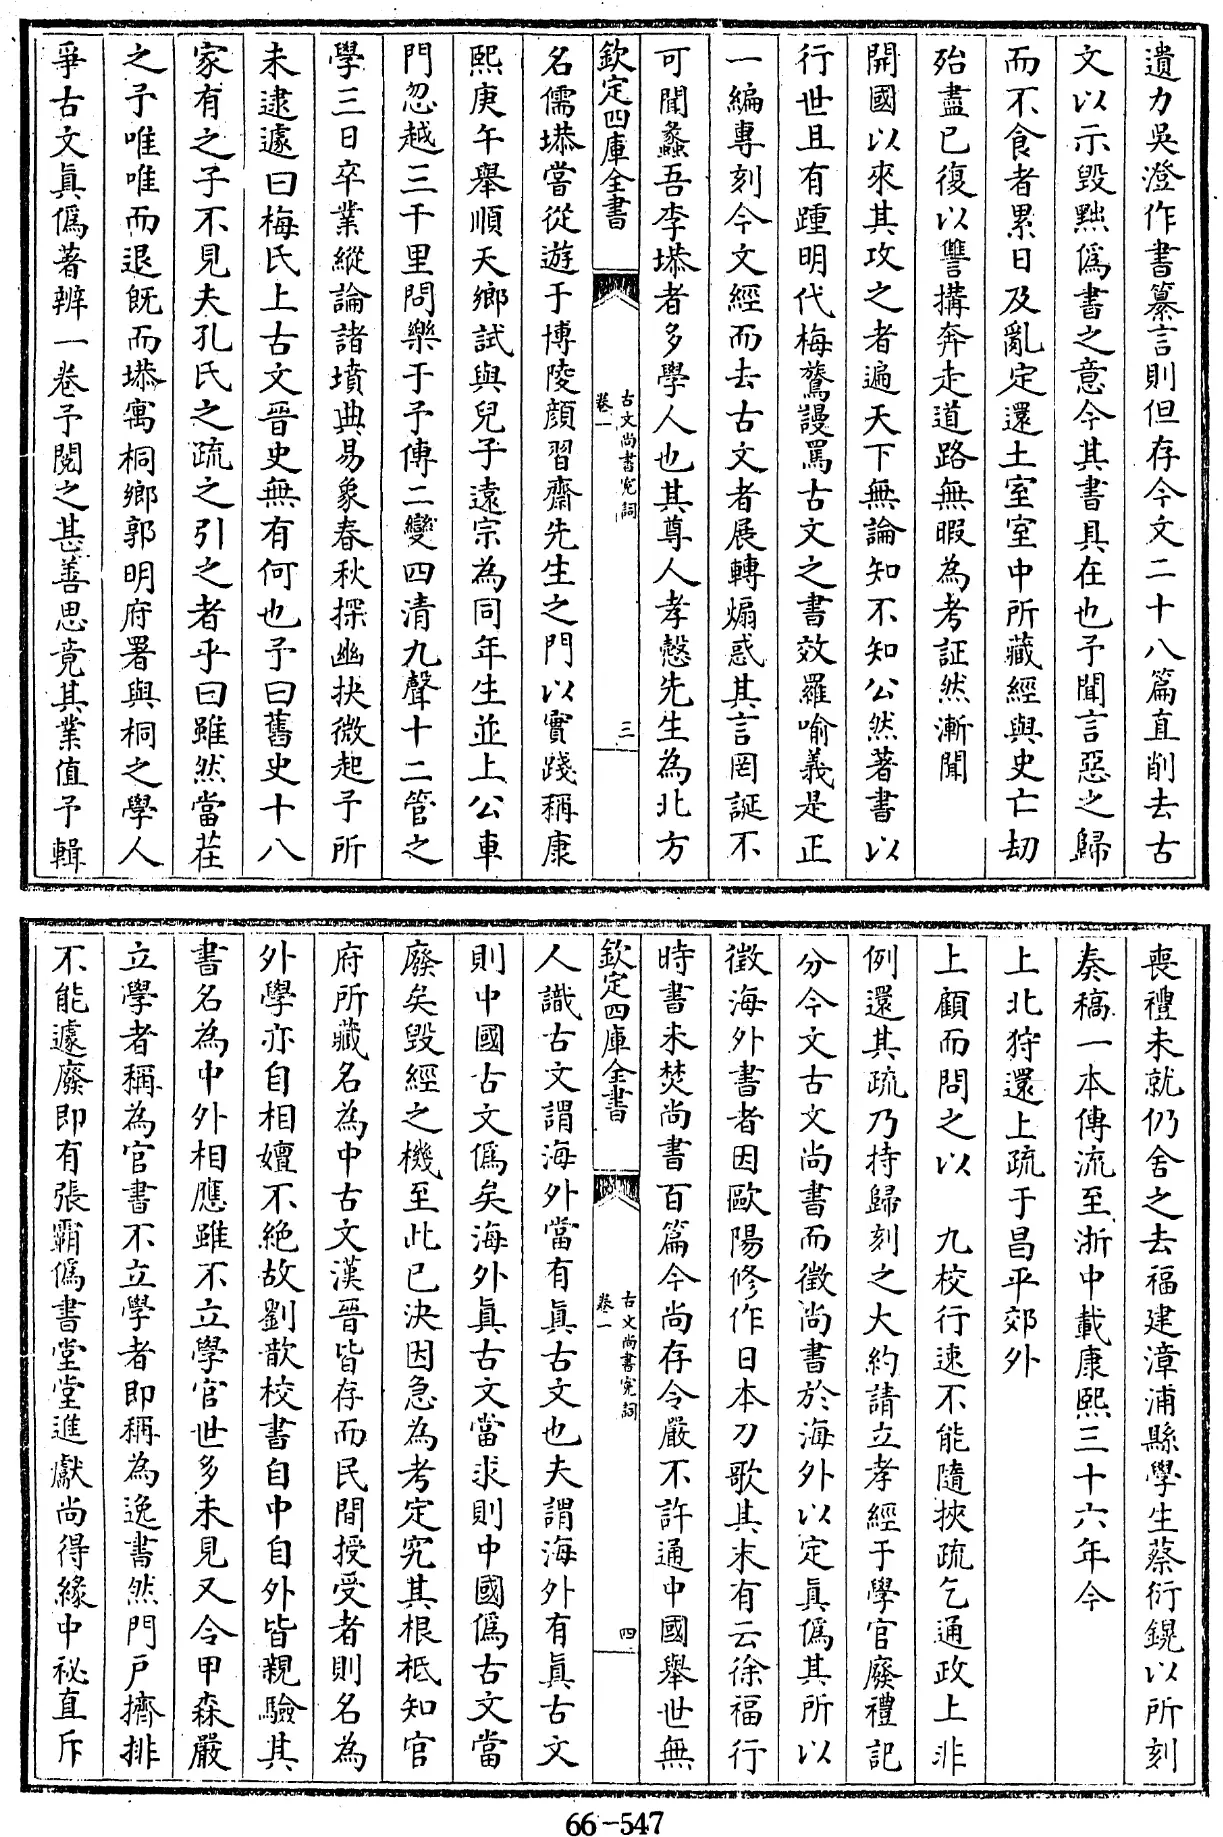 遺力吳澄作書纂言則但存今文二十八篇直削去古
文以示毀黜僞書之意今其書具在也予聞言惡之歸
而不食者累日及亂定還土室室中所藏經與史亡刼
殆盡已復以讐搆奔走道路無暇為考証然漸聞
開國以來其攻之者遍天下無論知不知公然著書以
行世且有踵明代梅鷟謾罵古文之書效羅喻義是正
一編專刻今文經而去古文者展轉煽惑其言罔誕不
可聞蠡吾李塨者多學人也其尊人孝慤先生為北方
欽定四庫全書
古文尚書寃詞
卷一
三
名儒塨嘗從遊于博陵顔習齋先生之門以實踐稱康
熙庚午舉順天鄉試與兒子遠宗為同年生並上公車
門忽越三千里問樂于予傳二變四清九聲十二管之
學三日卒業縱論諸墳典易象春秋探幽抉微起予所
未逮遽曰梅氏上古文晉史無有何也予曰舊史十八
家有之子不見夫孔氏之疏之引之者乎曰雖然當茬
之予唯唯而退旣而塨寓桐鄉郭明府署與桐之學人
爭古文眞僞著辨一卷予閱之甚善思竟其業值予輯
喪禮未就仍舍之去福建漳浦縣學生蔡衍鎤以所刻
奏稿一本傳流至浙中載康熙三十六年今
上北狩還上疏于昌平郊外
上顧而問之以 九校行速不能隨挾疏乞通政上非
例還其疏乃持歸刻之大約請立孝經于學官廢禮記
分今文古文尚書而徵尚書於海外以定眞僞其所以
徵海外書者因歐陽修作日本刀歌其末有云徐福行
時書未焚尚書百篇今尚存令嚴不許通中國舉世無
欽定四庫全書
古文尚書寃詞
卷一
四
人識古文謂海外當有眞古文也夫謂海外有眞古文
則中國古文僞矣海外眞古文當求則中國僞古文當
廢矣毀經之機至此已決因急為考定究其根柢知官
府所藏名為中古文漢晉皆存而民間授受者則名為
外學亦自相嬗不絶故劉歆校書自中自外皆親驗其
書名為中外相應雖不立學官世多未見又令甲森嚴
立學者稱為官書不立學者即稱為逸書然門戶擠排
不能遽廢即有張霸僞書堂堂進獻尚得緣中祕直斥
66-547